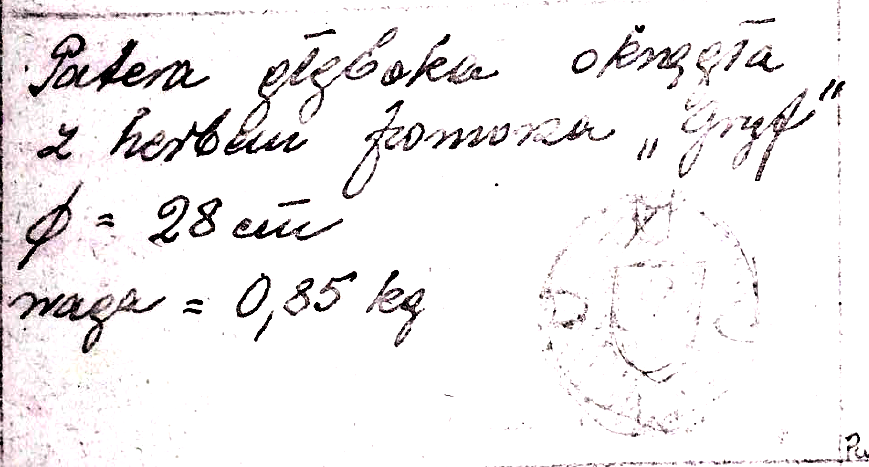 Patera głęboka okrągła
z herbem pomorza „Gryf"
ϕ = 28 cm
waga = 0,85 kg